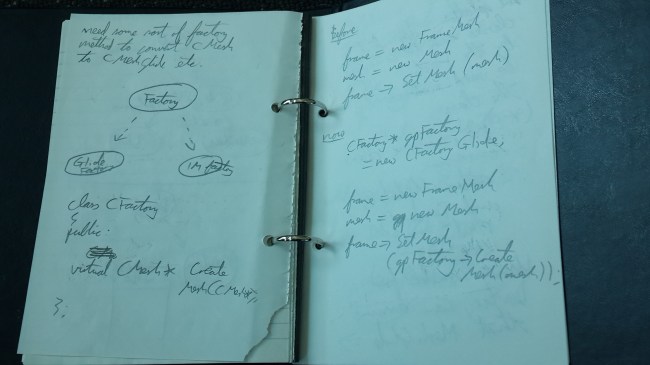 need some sort of factory
method to convert CMesh
to CMeshGlide etc.
Factory
Glide
Factory
IM Factory
class CFactory
{
public:
virtual CMesh* Create
Mesh(CMesh*);
};
Before
frame = new FrameMesh
mesh = new Mesh
frame -> SetMesh (mesh)
now
CFactory* gpFactory
= new CFactoryGlide;
frame = new FrameMesh
mesh = new Mesh
frame -> SetMesh
(gpFactory -> Create
Mesh(mesh));